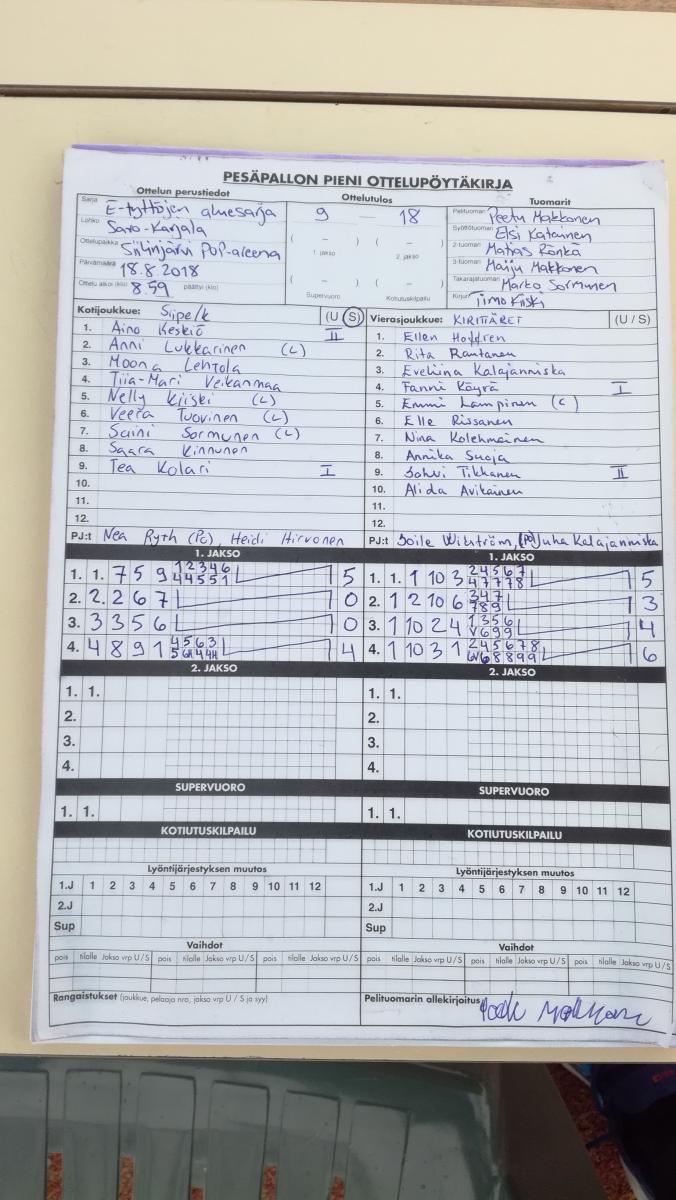 PESÄPALLON PIENI OTTELUPÖYTÄKIRJA
Ottelun perustiedot
Sarja E-tyttöjen aluesarja
Lohko Savo-Karjala
Ottelupaikka Siilinjärvi POP-areena
Päivämäärä 18.8.2018
Ottelu alkoi (klo) 8.59 päättyi (klo)
Ottelutulos
9 — 18
( – ) ( – )
1. jakso 2. jakso
( – ) ( – )
Supervuoro Kotiutuskilpailu
Tuomarit
Pelituomari Peetu Makkonen
Syöttötuomari Elsi Katainen
2-tuomari Matias Rönkä
3-tuomari Maiju Makkonen
Takarajatuomari Marko Sormunen
Kirjuri Timo Kiiski
Kotijoukkue: Siipe/k (U S)
1. Aino Keskiö II
2. Anni Lukkarinen (L)
3. Moona Lehtola
4. Tiia-Mari Veikanmaa
5. Nelly Kiiski (L)
6. Veera Tuovinen (L)
7. Saini Sormunen (L)
8. Saara Kinnunen
9. Tea Kolari I
10.
11.
12.
PJ:t Nea Ryth (PC), Heidi Hirvonen
Vierasjoukkue: KIRITTÄRET (U / S)
1. Ellen Hoffren
2. Rita Rautanen
3. Eveliina Kalajanniska
4. Fanni Köyrä I
5. Emmi Lampinen (C)
6. Elle Rissanen
7. Nina Kolehmainen
8. Annika Suoja
9. Sohvi Tikkanen II
10. Alida Avikainen
11.
12.
PJ:t Soile Wikström, (PC) Juha Kalajanniska
1. JAKSO
1. 1. 7 5 9 1 2 3 4 6 5
4 4 5 5 1
2. 2. 2 6 7 0
3. 3 3 5 6 0
4. 4 8 9 1 4 5 6 3 4
1. JAKSO
1. 1. 1 10 3 2 4 5 6 7 5
4 7 7 7 8
2. 1 2 10 6 3 4 7 3
7 8 9
3. 1 10 2 4 1 3 5 6 4
V 6 9 9
4. 1 10 3 1 2 4 5 6 7 8 6
2. JAKSO
1. 1.
2.
3.
4.
2. JAKSO
1. 1.
2.
3.
4.
SUPERVUORO
1. 1.
SUPERVUORO
1. 1.
KOTIUTUSKILPAILU
KOTIUTUSKILPAILU
Lyöntijärjestyksen muutos
1.J 1 2 3 4 5 6 7 8 9 10 11 12
2.J
Sup
Lyöntijärjestyksen muutos
1.J 1 2 3 4 5 6 7 8 9 10 11 12
2.J
Sup
Vaihdot
pois tilalle Jakso vrp U/S pois tilalle Jakso vrp U/S pois tilalle Jakso vrp U/S
Vaihdot
pois tilalle Jakso vrp U/S pois tilalle Jakso vrp U/S pois tilalle Jakso vrp U/S
Rangaistukset (joukkue, pelaaja nro, jakso vrp U / S ja syy)
Pelituomarin allekirjoitus